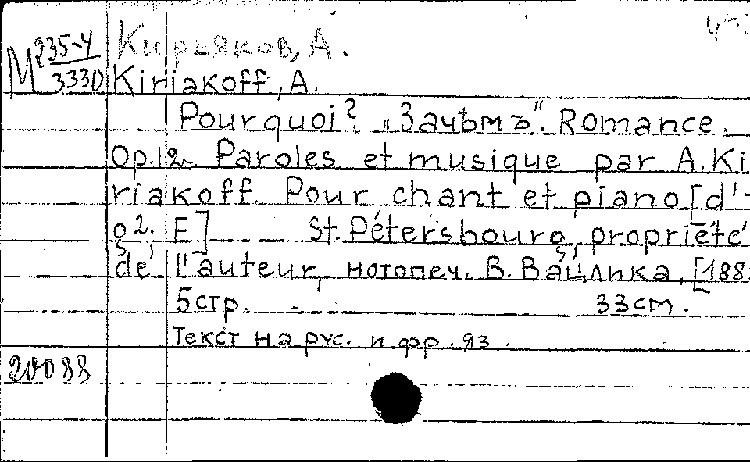 М 235-4/3330
Кирьяков, А.
Kiriakoff, A.
Pourquoi? „Зачѣмъ“. Romance.
Op.12. Paroles et musique par A.Ki
riakoff. Pour chant et piano [d'-
g2. F] St.Pétersbourg, propriété
de l'auteur, нотопеч. В. Вацлика, [188
5стр. 33см.
Текст на рус. и фр. яз.
20088